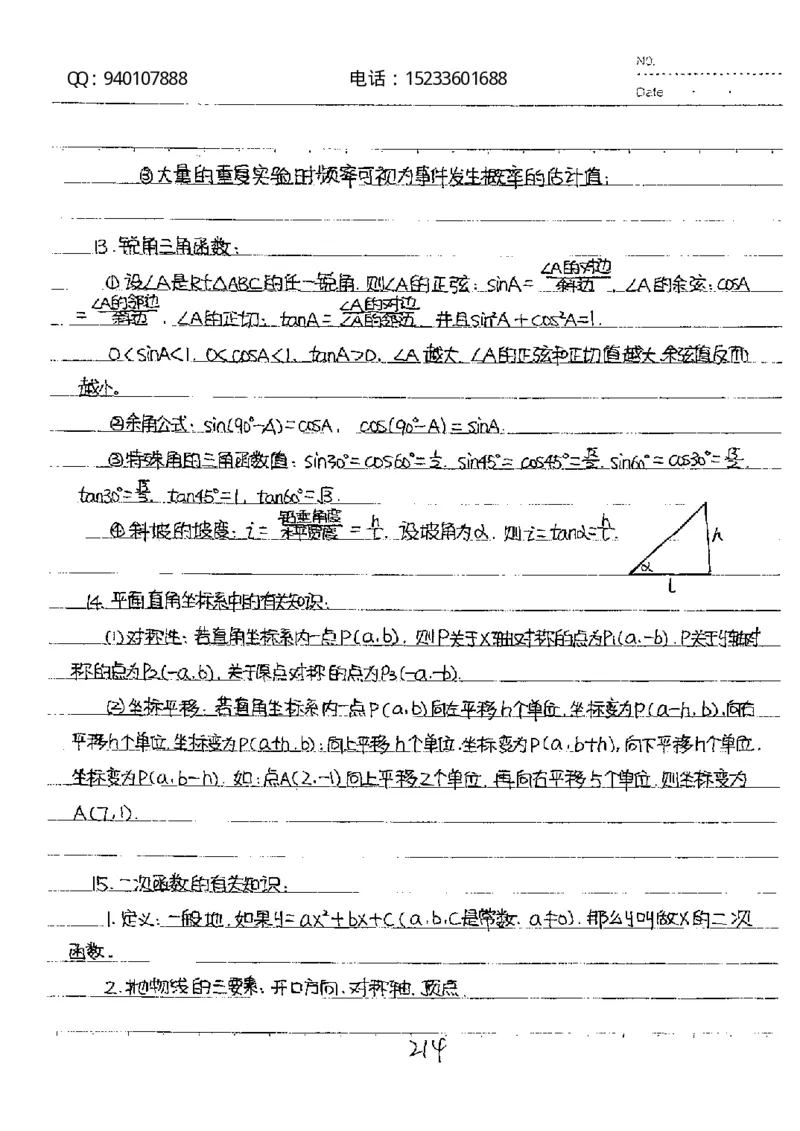 QQ：940107888 电话：15233601688 NO.
Date
③大量的重复实验时频率可视为事件发生概率的估计值；
13.锐角三角函数：
①设∠A是Rt△ABC的任一锐角，则∠A的正弦：sinA=∠A的对边/斜边，∠A的余弦：cosA
=∠A的邻边/斜边，∠A的正切：tanA=∠A的对边/∠A的邻边，并且sin²A+cos²A=1.
0<sinA<1，0<cosA<1，tanA>0，∠A越大，∠A的正弦和正切值越大，余弦值反而
越小。
②余角公式：sin(90°-A)=cosA，cos(90°-A)=sinA.
③特殊角的三角函数值：sin30°=cos60°=1/2，sin45°=cos45°=√2/2，sin60°=cos30°=√3/2，
tan30°=√3/3，tan45°=1，tan60°=√3.
④斜坡的坡度：i=铅垂角度/水平宽度=h/l，设坡角为α，则i=tanα=h/l.
h
α
l
14.平面直角坐标系中的有关知识：
(1)对称性：若直角坐标系内一点P(a,b)，则P关于X轴对称的点为P₁(a,-b)，P关于y轴对
称的点为P₂(-a,b)，关于原点对称的点为P₃(-a,-b).
(2)坐标平移：若直角坐标系内一点P(a,b)向左平移h个单位，坐标变为P(a-h,b)，向右
平移h个单位，坐标变为P(a+h,b)；向上平移h个单位，坐标变为P(a,b+h)，向下平移h个单位，
坐标变为P(a,b-h)．如：点A(2,-1)向上平移2个单位，再向右平移5个单位，则坐标变为
A(7,1).
15.二次函数的有关知识：
1.定义：一般地，如果y=ax²+bx+c(a,b,c是常数，a≠0)，那么y叫做X的二次
函数。
2.抛物线的三要素：开口方向、对称轴、顶点
214